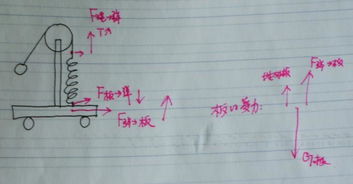 F绳→弹
T
F板→弹
F弹→板
板的受力:
地对板
F弹→板
G板